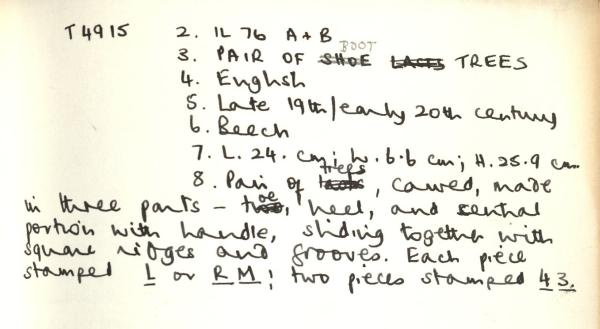 T4915 2. IL 76 A+B
3. PAIR OF BOOT TREES
4. English
5. Late 19th/early 20th century
6. Beech
7. L. 24. cm; W. 6.6 cm; H. 25.9 cm
8. Pair of trees, carved, made
in three parts - toe, heel, and central
portion with handle, sliding together with
square ridges and grooves. Each piece
stamped L or R M; two pieces stamped 43.